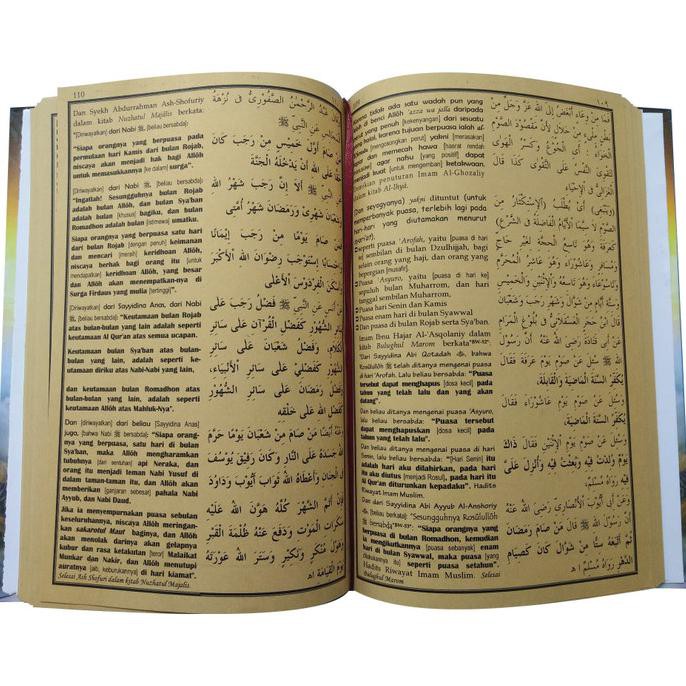 ١٠٩
karena tidak ada satu wadah pun yang
lebih benci Allôh 'azza wa jalla daripada
perut yang penuh [kekenyangan] dari sesuatu
yang halal. karena tujuan berpuasa ialah
[mengosongkan perut] yakni [merasakan]
lapar dan memecah hawa [hasrat rendah
agar nafsu [yang positif] dapat
menjadi kuat [untuk menggapai] ketakwaan.
penuturan Imam Al-Ghozaliy
dalam kitab Al-Ihyâ.
Dan (seyogyanya) yakni dituntut (untuk
memperbanyak puasa, terlebih lagi pada
hari-hari yang diutamakan menurut
syari'at).
Seperti puasa 'Arofah, yaitu [puasa di hari ke]
sembilan di bulan Dzulhijjah, bagi
selain orang yang haji, dan orang yang
bepergian [musafir].
Puasa 'Asyuro, yaitu [puasa di hari ke]
sepuluh bulan Muharrom, dan hari
tanggal sembilan Muharrom.
Puasa hari Senin dan Kamis
Puasa enam hari di bulan Syawwal
Dan puasa di bulan Rojab serta Sya'ban.
Ibnu Hajar Al-'Asqolaniy dalam
kitab Bulughul Marom berkata
"Dari Sayyidina Abi Qotadah, bahwa
Rosûlullôh ﷺ telah ditanya mengenai puasa
di hari 'Arofah. Lalu beliau bersabda: "Puasa
tersebut dapat menghapus [dosa kecil] pada
tahun yang telah lalu dan yang akan
datang".
Dan beliau ditanya mengenai puasa 'Asyuro,
lalu beliau bersabda: "Puasa tersebut
dapat menghapuskan [dosa kecil] pada
tahun yang telah lalu".
Dan beliau ditanya mengenai puasa di hari
Senin, lalu beliau bersabda: "[Hari Senin] itu
adalah hari aku dilahirkan, pada hari
itu aku diutus [menjadi Rosul], pada hari itu
Al Qur'an diturunkan kepadaku". Hadits
Riwayat Imam Muslim.
Dan dari Sayyidina Abi Ayyub Al-Anshoriy
"Sesungguhnya Rosûlullôh
ﷺ bersabda: "Siapa orangnya yang
berpuasa di bulan Romadhon, kemudian
dia mengikutkannya [puasa sebanyak] enam
hari di bulan Syawwal, maka puasa [yang
dilakukannya itu] seperti puasa setahun".
Hadits Riwayat Imam Muslim. Selesai
Bulughul Marom
فَمَا مِنْ وِعَاءٍ أَبْغَضُ إِلَى اللهِ عَزَّ وَجَلَّ مِنْ
بَطْنٍ مَلِيءٍ مِنْ حَلَالٍ لِأَنَّ مَقْصُودَ الصَّوْمِ
الخَوَاءُ: أَيْ الجُوْعُ وَكَسْرُ الْهَوَى
لِتَقْوَى النَّفْسُ عَلَى التَّقْوَى كَذَا قَالَ
الغَزَالِيُّ فِي الإِحْيَاءِ
(وَيَنْبَغِى) أَيْ يُطْلَبُ (الْإِسْتِكْثَارُ مِنَ
الصَّوْمِ لَا سِيَّمَا الْأَيَّامُ الْفَاضِلَةُ فِي الشَّرْعِ)
كَعَرَفَةَ وَهُوَ تَاسِعُ الْحِجَّةِ لِغَيْرِ حَاجٍّ
وَمُسَافِرٍ وَعَاشُوْرَاءَ وَهُوَ عَاشِرُ الْمُحَرَّمِ
وَتَاسُوعَاءَ وَهُوَ تَاسِعُهُ وَالْإِثْنَيْنِ وَالْخَمِيْسِ
وَسِتَّةِ أَيَّامٍ مِنْ شَوَّالٍ وَرَجَبَ وَشَعْبَانَ
قَالَ ابْنُ حَجَرٍ الْعَسْقَلَانِيُّ فِى بُلُوْغِ الْمَرَامِ
عَنْ أَبِي قَتَادَةَ رَضِيَ اللهُ عَنْهُ أَنَّ رَسُولَ
اللهِ ﷺ سُئِلَ عَنْ صَوْمِ يَوْمِ عَرَفَةَ، فَقَالَ:
يُكَفِّرُ السَّنَةَ الْمَاضِيَةَ وَالْقَابِلَةَ،
وَسُئِلَ عَنْ صَوْمِ يَوْمِ عَاشُوْرَاءَ فَقَالَ
يُكَفِّرُ السَّنَةَ الْمَاضِيَةَ،
وَسُئِلَ عَنْ صَوْمِ يَوْمِ الْإِثْنَيْنِ، فَقَالَ ذَاكَ
يَوْمٌ وُلِدْتُ فِيْهِ وَبُعِثْتُ فِيْهِ وَأُنْزِلَ عَلَيَّ
فِيْهِ رَوَاهُ مُسْلِمٌ،
وَعَنْ أَبِى أَيُّوْبَ الْأَنْصَارِيِّ رَضِيَ اللهُ عَنْهُ
أَنَّ رَسُولَ اللهِ ﷺ قَالَ مَنْ صَامَ رَمَضَانَ
ثُمَّ أَتْبَعَهُ سِتًّا مِنْ شَوَّالٍ كَانَ كَصِيَامِ
الدَّهْرِ رَوَاهُ مُسْلِمٌ ا ه
110
Dan Syekh Abdurrahman Ash-Shofuriy
dalam kitab Nuzhatul Majâlis berkata:
"[Diriwayatkan] dari Nabi ﷺ, [beliau bersabda]:
"Siapa orangnya yang berpuasa pada
permulaan hari Kamis dari bulan Rojab,
niscaya akan menjadi hak bagi Allôh
untuk memasukkannya [ke dalam] surga".
[Diriwayatkan] dari Nabi ﷺ, [beliau bersabda]:
"Ingatlah! Sesungguhnya bulan Rojab
adalah bulan Allôh, dan bulan Sya'ban
adalah bulan [khusus] bagiku, dan bulan
Romadhon adalah bulan [istimewa] umatku.
Siapa orangnya yang berpuasa satu hari
dari bulan Rojab [dengan penuh] keimanan
dan mencari [meraih] keridhoan Allôh,
niscaya berhak bagi orang itu [untuk
mendapatkan] keridhoan Allôh, yang besar
dan Allôh akan menempatkan-nya di
Surga Firdaus yang mulia [tertinggi]".
[Diriwayatkan] dari Sayyidina Anas, dari Nabi
ﷺ, [beliau bersabda]: "Keutamaan bulan Rojab
atas bulan-bulan yang lain adalah seperti
keutamaan Al Qur'an atas semua ucapan.
Keutamaan bulan Sya'ban atas bulan-
bulan yang lain, adalah seperti ke-
utamaan diriku atas Nabi-Nabi yang lain,
dan keutamaan bulan Romadhon atas
bulan-bulan yang lain, adalah seperti
keutamaan Allôh atas Mahluk-Nya".
Dan [diriwayatkan] dari beliau [Sayyidina Anas]
juga, [bahwa Nabi ﷺ bersabda]: "Siapa orang-
nya yang berpuasa, satu hari di bulan
Sya'ban, maka Allôh mengharamkan
tubuhnya [dari sentuhan] api Neraka, dan
orang itu menjadi teman Nabi Yusuf di
dalam taman-taman itu, dan Allôh akan
memberikan [ganjaran sebesar] pahala Nabi
Ayyub, dan Nabi Daud.
Jika ia menyempurnakan puasa sebulan
keseluruhannya, niscaya Allôh meringan-
kan sakarotul Maut baginya, dan Allôh
akan menolak darinya akan gelapnya
kubur dan rasa ketakutan [teror] Malaikat
Munkar dan Nakir, dan Allôh menutupi
auratnya [aib, keburukannya] di hari kiamat".
Selesai Ash Shofuri dalam kitab Nuzhatul Majalis.
عَبْدُ الرَّحْمٰنِ الصَّفُوْرِيُّ فِى نُزْهَةِ
الْمَجَالِسِ عَنِ النَّبِيِّ ﷺ
مَنْ صَامَ أَوَّلَ خَمِيْسٍ مِنْ رَجَبَ كَانَ
حَقًّا عَلَى اللهِ أَنْ يُدْخِلَهُ الْجَنَّةَ
عَنِ النَّبِيِّ ﷺ أَلَا إِنَّ رَجَبَ شَهْرُ اللهِ
وَشَعْبَانَ شَهْرِيْ وَرَمَضَانَ شَهْرُ أُمَّتِي
فَمَنْ صَامَ يَوْمًا مِنْ رَجَبَ إِيْمَانًا
وَاحْتِسَابًا اسْتَوْجَبَ رِضْوَانَ اللهِ الْأَكْبَرَ
وَأَسْكَنَهُ الْفِرْدَوْسَ الْأَعْلَى
عَنْ أَنَسٍ عَنِ النَّبِيِّ ﷺ فَضْلُ رَجَبَ عَلَى
سَائِرِ الشُّهُوْرِ كَفَضْلِ الْقُرْآنِ عَلَى سَائِرِ
الْكَلَامِ، وَفَضْلُ شَعْبَانَ عَلَى سَائِرِ
الشُّهُوْرِ كَفَضْلِيْ عَلَى سَائِرِ الْأَنْبِيَاءِ،
وَفَضْلُ رَمَضَانَ عَلَى سَائِرِ الشُّهُوْرِ
كَفَضْلِ اللهِ عَلَى خَلْقِهِ
وَعَنْهُ أَيْضًا مَنْ صَامَ مِنْ شَعْبَانَ يَوْمًا حَرَّمَ
اللهُ جَسَدَهُ عَلَى النَّارِ وَكَانَ رَفِيْقَ يُوْسُفَ
فِى الْجِنَانِ وَأَعْطَاهُ اللهُ ثَوَابَ أَيُّوْبَ وَدَاوُدَ
فَإِنْ أَتَمَّ الشَّهْرَ كُلَّهُ هَوَّنَ اللهُ عَلَيْهِ
سَكَرَاتِ الْمَوْتِ وَدَفَعَ عَنْهُ ظُلْمَةَ الْقَبْرِ
وَهَوْلَ مُنْكَرٍ وَنَكِيْرٍ وَسَتَرَ اللهُ عَوْرَتَهُ
يَوْمَ الْقِيَامَةِ ا ه